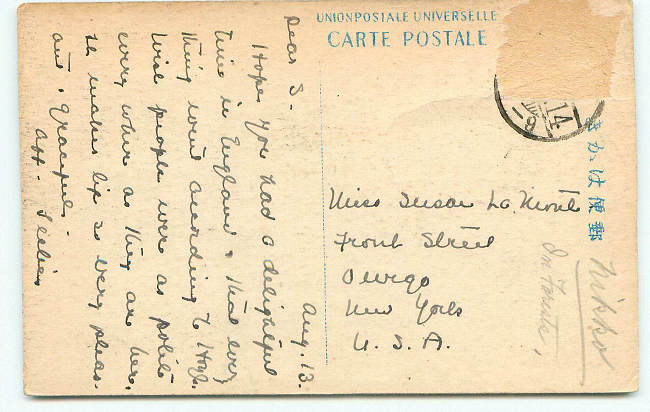 UNIONPOSTALE UNIVERSELLE
CARTE POSTALE
きかは便郵
14
Aug. 13.
Dear S-
Hope you had a delightful
time in England & that every
thing went according to Hoyle.
Wish people were as polite
every where as they are here.
It makes life so very pleas-
ant & graceful.
Aff-
Miss Susan La Monte
Front Street
Owego
New York
U. S. A.
Nikko